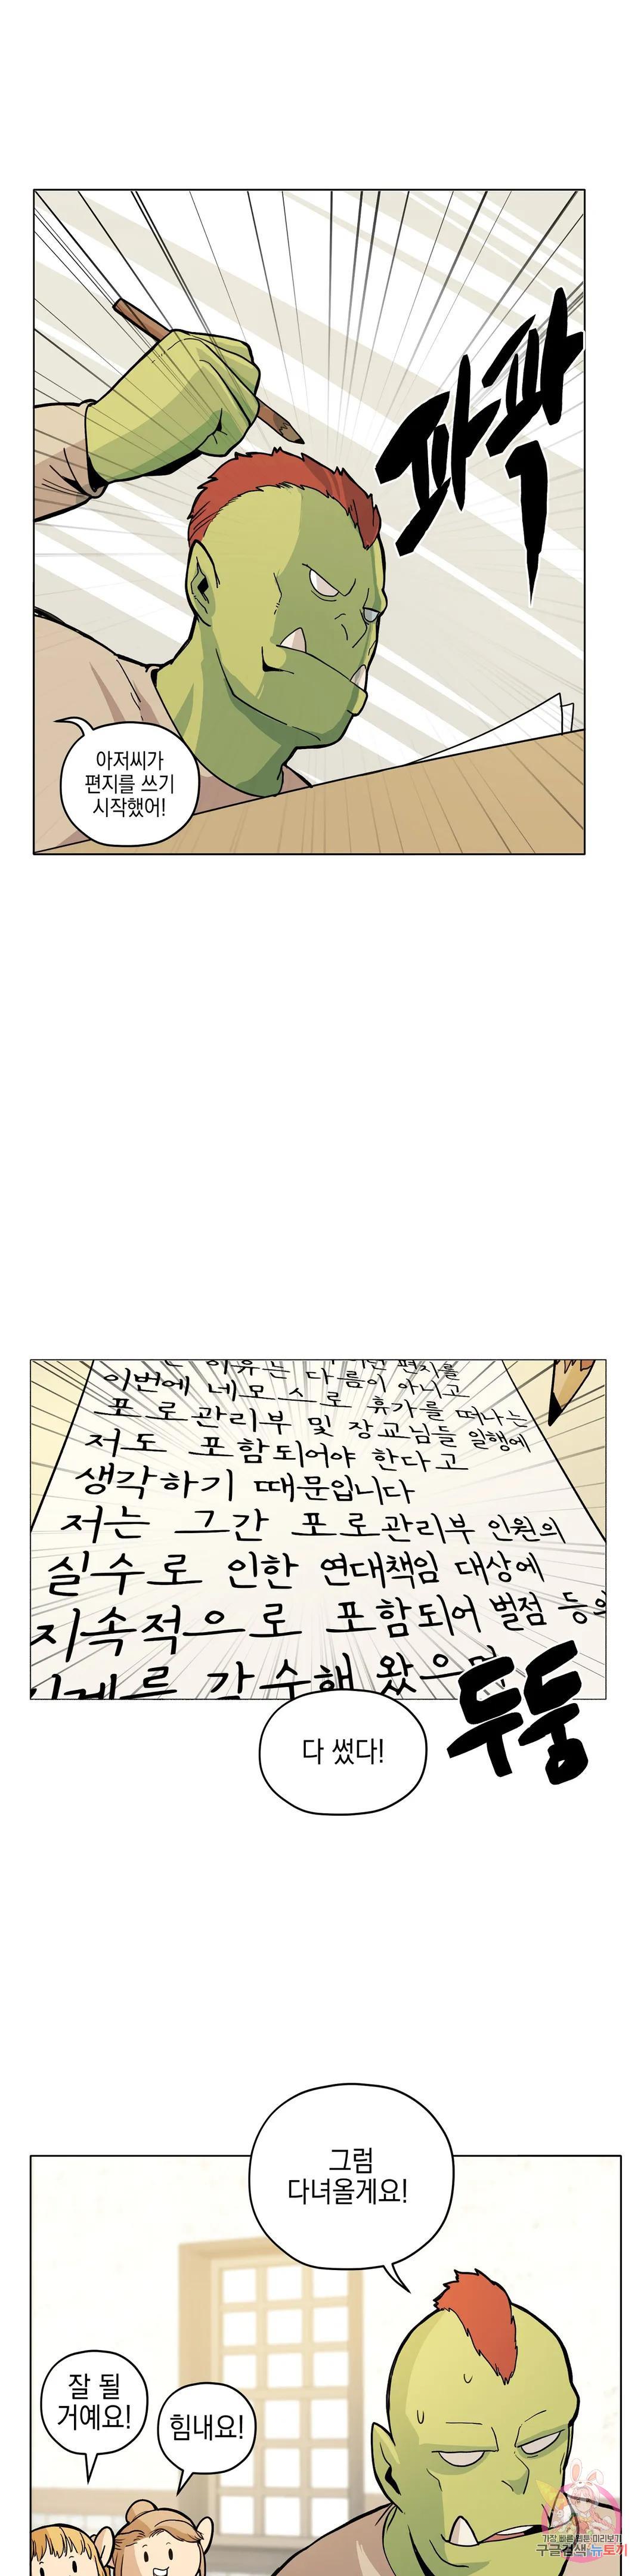 파파
팍
아저씨가
편지를 쓰기
시작했어!
이유는
편지를
이번에 네모스로
다름이 아니고
휴가를 떠나는
포로관리부 및 장교님들 일행에
저도 포함되어야 한다고
생각하기 때문입니다
저는 그간 포로관리부 인원의
실수로 인한 연대책임 대상에
지속적으로 포함되어 벌점 등의
감수해 왔으며
두둥
다 썼다!
그럼
다녀올게요!
잘 될
거예요!
힘내요!
가장 빠른 웹툰 미리보기
구글검색 뉴토끼